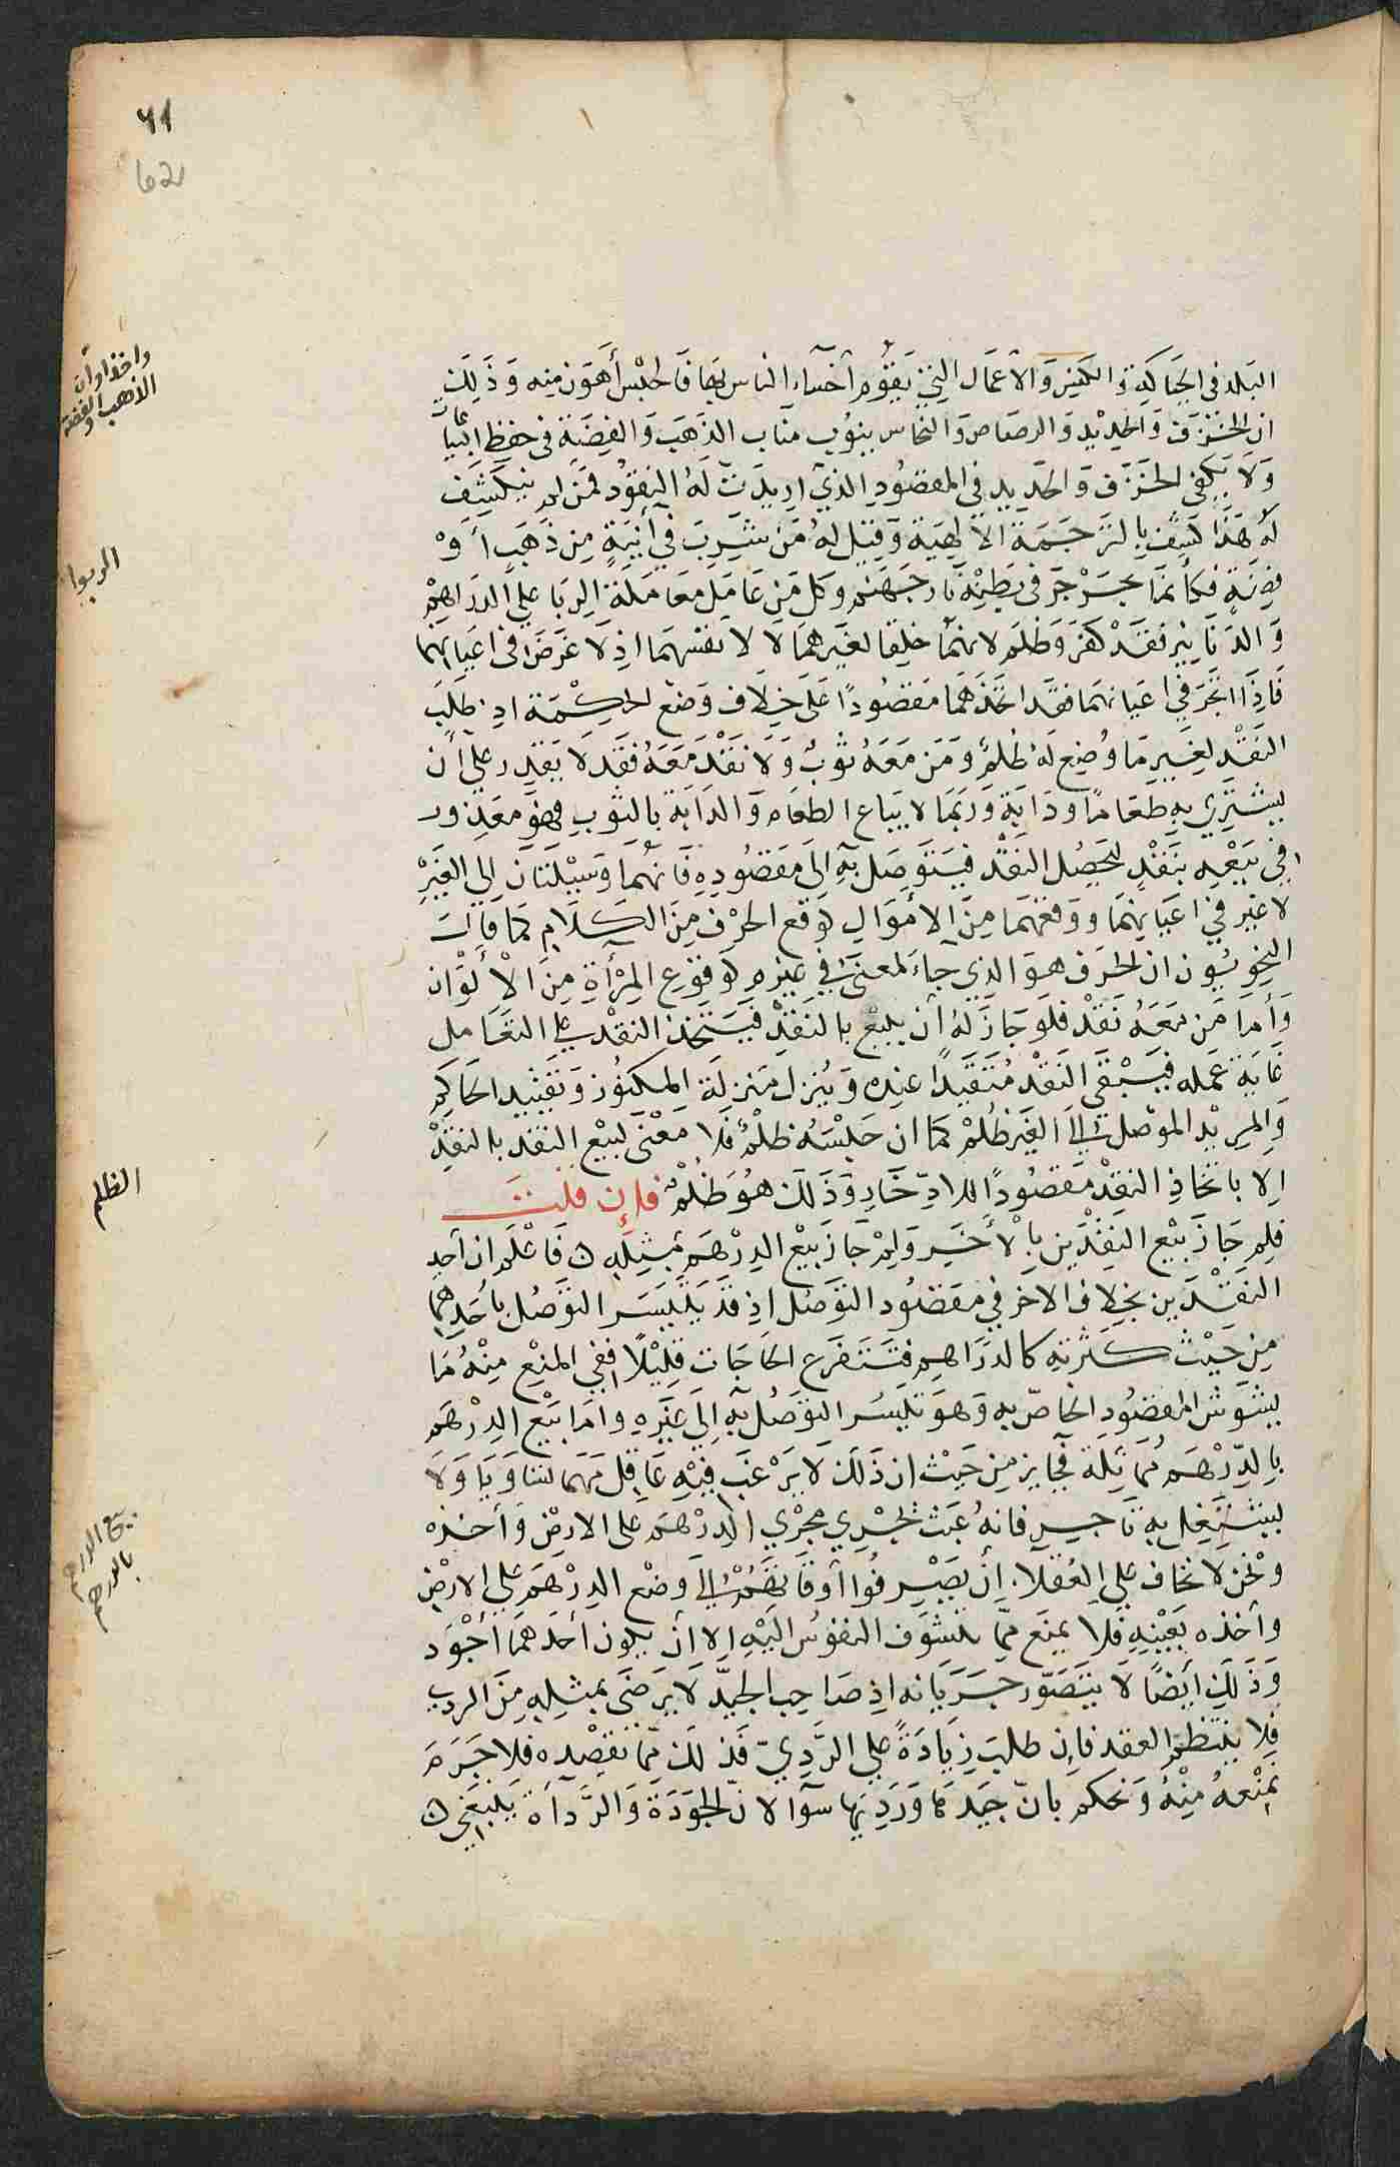 ٦١
62
البلد في الحياكة والكنس والأعمال التي يقوم أخساء الناس بها فالحبس أهون منه وذلك
ان الخزف والحديد والرصاص والنحاس ينوب مناب الذهب والفضة في حفظ المايعات
ولا يكفي الخزف والحديد في المقصود الذي اريدت له النقود فمن لم ينكشف
له هذا كشف بالترجمة الالهية وقيل له من شرب في آنية من ذهب أو
فضة فكأنما يجرجر في بطنه نار جهنم وكل من عامل معاملة الربا على الدراهم
والدنانير فقد كفر وظلم لانهما خلقا لغيرهما لا لانفسهما اذ لا غرض في اعيانهما
فاذا اتجر في اعيانهما فقد اتخذهما مقصودًا على خلاف وضع الحكمة اذ طلب
النقد لغير ما وضع له ظلم ومن معه ثوب ولا نقد معه فقد لا يقدر على أن
يشتري به طعامًا ودابة وربما لا يباع الطعام والدابة بالثوب فهو معذور
في بيعه بنقد ليحصل النقد فيتوصل به الى مقصوده فانهما وسيلتان إلى الغير
لا غير في اعيانهما ووقعهما من الأموال كوقع الحرف من الكلام كما قالت
النحويون ان الحرف هو الذي جاء لمعنى في غيره كوقوع المرأة من الألوان
وأما من معه نقد فلو جاز له أن يبيع بالنقد فيتخذ النقد على التعامل
غاية عمله فيبقى النقد متقيدًا عنده وينزل منزلة المكنوز وتقييد الحاكم
والبريد الموصل إلى الغير ظلم كما ان حبسه ظلم فلا معنى لبيع النقد بالنقد
إلا باتخاذ النقد مقصودًا للادّخار وذلك هو ظلم فإن قلت
فلم جاز بيع النقدين بالأخر ولم جاز بيع الدرهم بمثله ن فاعلم ان أحد
النقدين بخلاف الاخر في مقصود التوصل اذ قد يتيسر التوصل بأحدهما
من حيث كثرته كالدراهم فتتفرع الحاجات قليلًا ففي المنع منه ما
يشوش المقصود الخاصّ به وهو تيسر التوصل به إلى غيره واما بيع الدرهم
بالدّرهم مماثلة فجايز من حيث ان ذلك لا يرغب فيه عاقل مهما تساويا ولا
يشتغل به تاجر فانه عبث يجري مجرى الدرهم على الارض وأخذه
ونحن لا نخاف على العقلا، أن يصرفوا أوقاتهم إلى وضع الدرهم على الارض
وأخذه بعينه فلا يمنع ممّا تتشوف النفوس اليه إلا أن يكون أحدهما أجود
وذلك أيضًا لا يتصوّر جريانه اذ صاحب الجيّد لا يرضى بمثله من الردي
فلا ينتظم العقد فإن طلب زيادةً على الردّيّ فذلك ممّا نقصده فلا جرم
نمنعه منه ونحكم بانّ جيدها ورديها سوآ لانّ الجودة والردآة ينبغي ن
واخذ اوان
الذهب والفضة
الربوا
الظلم
بيع الدرهم
بالدرهم